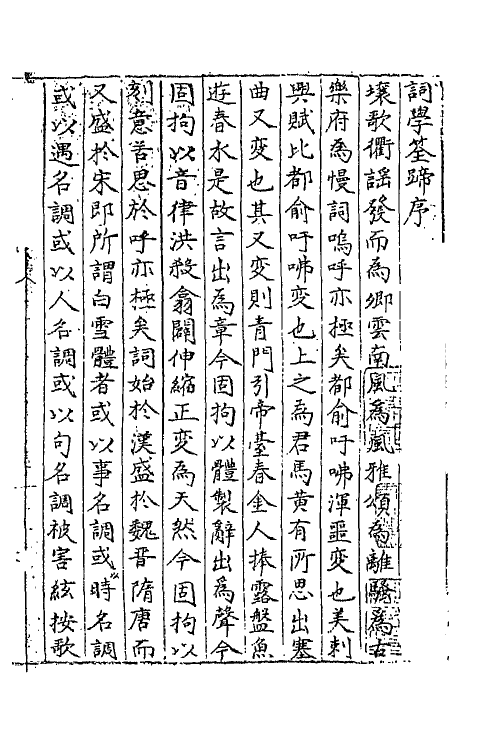 詞學筌蹄序
壤歌衢謡發而為卿雲南風為風雅頌為離騷為古
樂府為慢詞嗚呼亦極矣都俞吁咈渾噩變也美刺
興賦比都俞吁咈變也上之為君馬黄有所思出塞
曲又变也其又变則青門引帝臺春金人捧露盤魚
遊春水是故言出為章今固拘以體製辭出為聲今
固拘以音律洪殺翕闢伸縮正变為天然今固拘以
刻意苦思於呼亦極矣詞始於漢盛於魏晋隋唐而
又盛於宋即所謂白雪體者或以事名調或以時名調
或以遇名調或以人名調或以句名調被害絃按歌